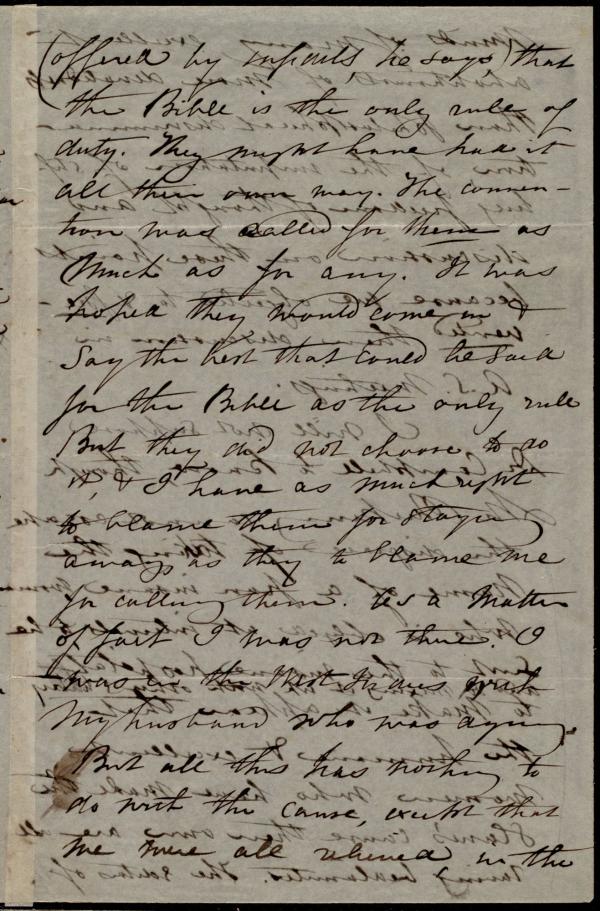 (offered by infidels, he says,) that
the Bible is the only rule of
duty. They might have had it
all their own way. The conven-
tion was called for them as
much as for any. It was
hoped they would come in &
say the best that could be said
for the Bible as the only rule
But they did not choose to do
it, & I have as much right
to blame them for staying
away, as they to blame me
for calling them. As a matter
of fact I was not there. I
was in the West Indies with
my husband who was dying.
But all this has nothing to
do with the cause, except that
we were all in the